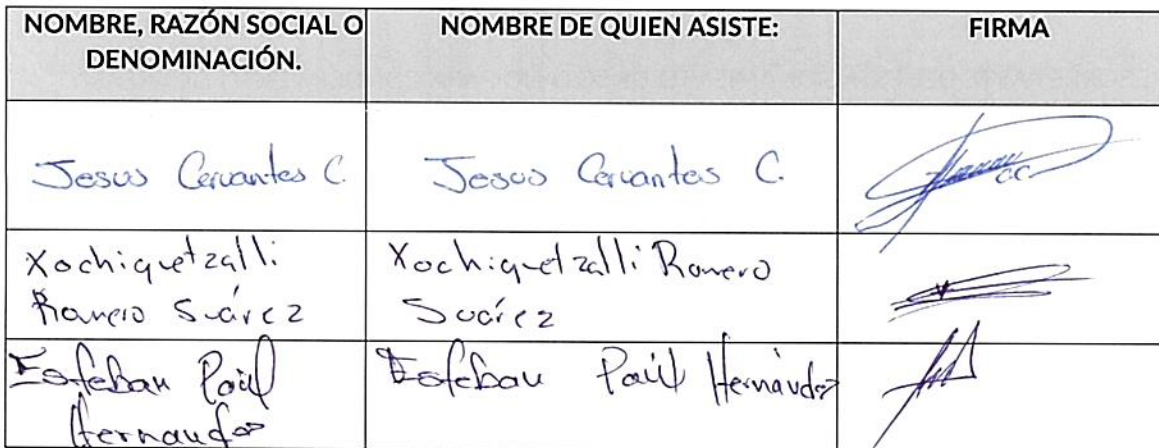 NOMBRE, RAZÓN SOCIAL O
DENOMINACIÓN.
NOMBRE DE QUIEN ASISTE:
FIRMA
Jesus Cervantes C.
Jesus Cervantes C.
Xochiquetzalli
Romero Suárez
Xochiquetzalli Romero
Suárez
Esteban Paúl
Hernandez
Esteban Paúl Hernández